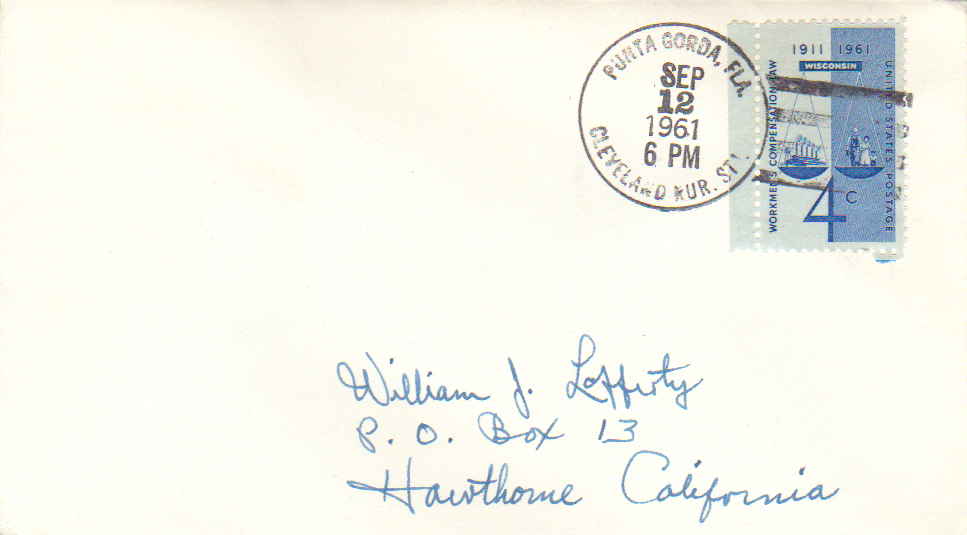 PUNTA GORDA, FLA.
SEP
12
1961
6 PM
CLEVELAND RUR. STA.
1911 1961
WISCONSIN
WORKMEN'S COMPENSATION LAW
UNITED STATES POSTAGE
4 C
William J. Lafferty
P. O. Box 13
Hawthorne California